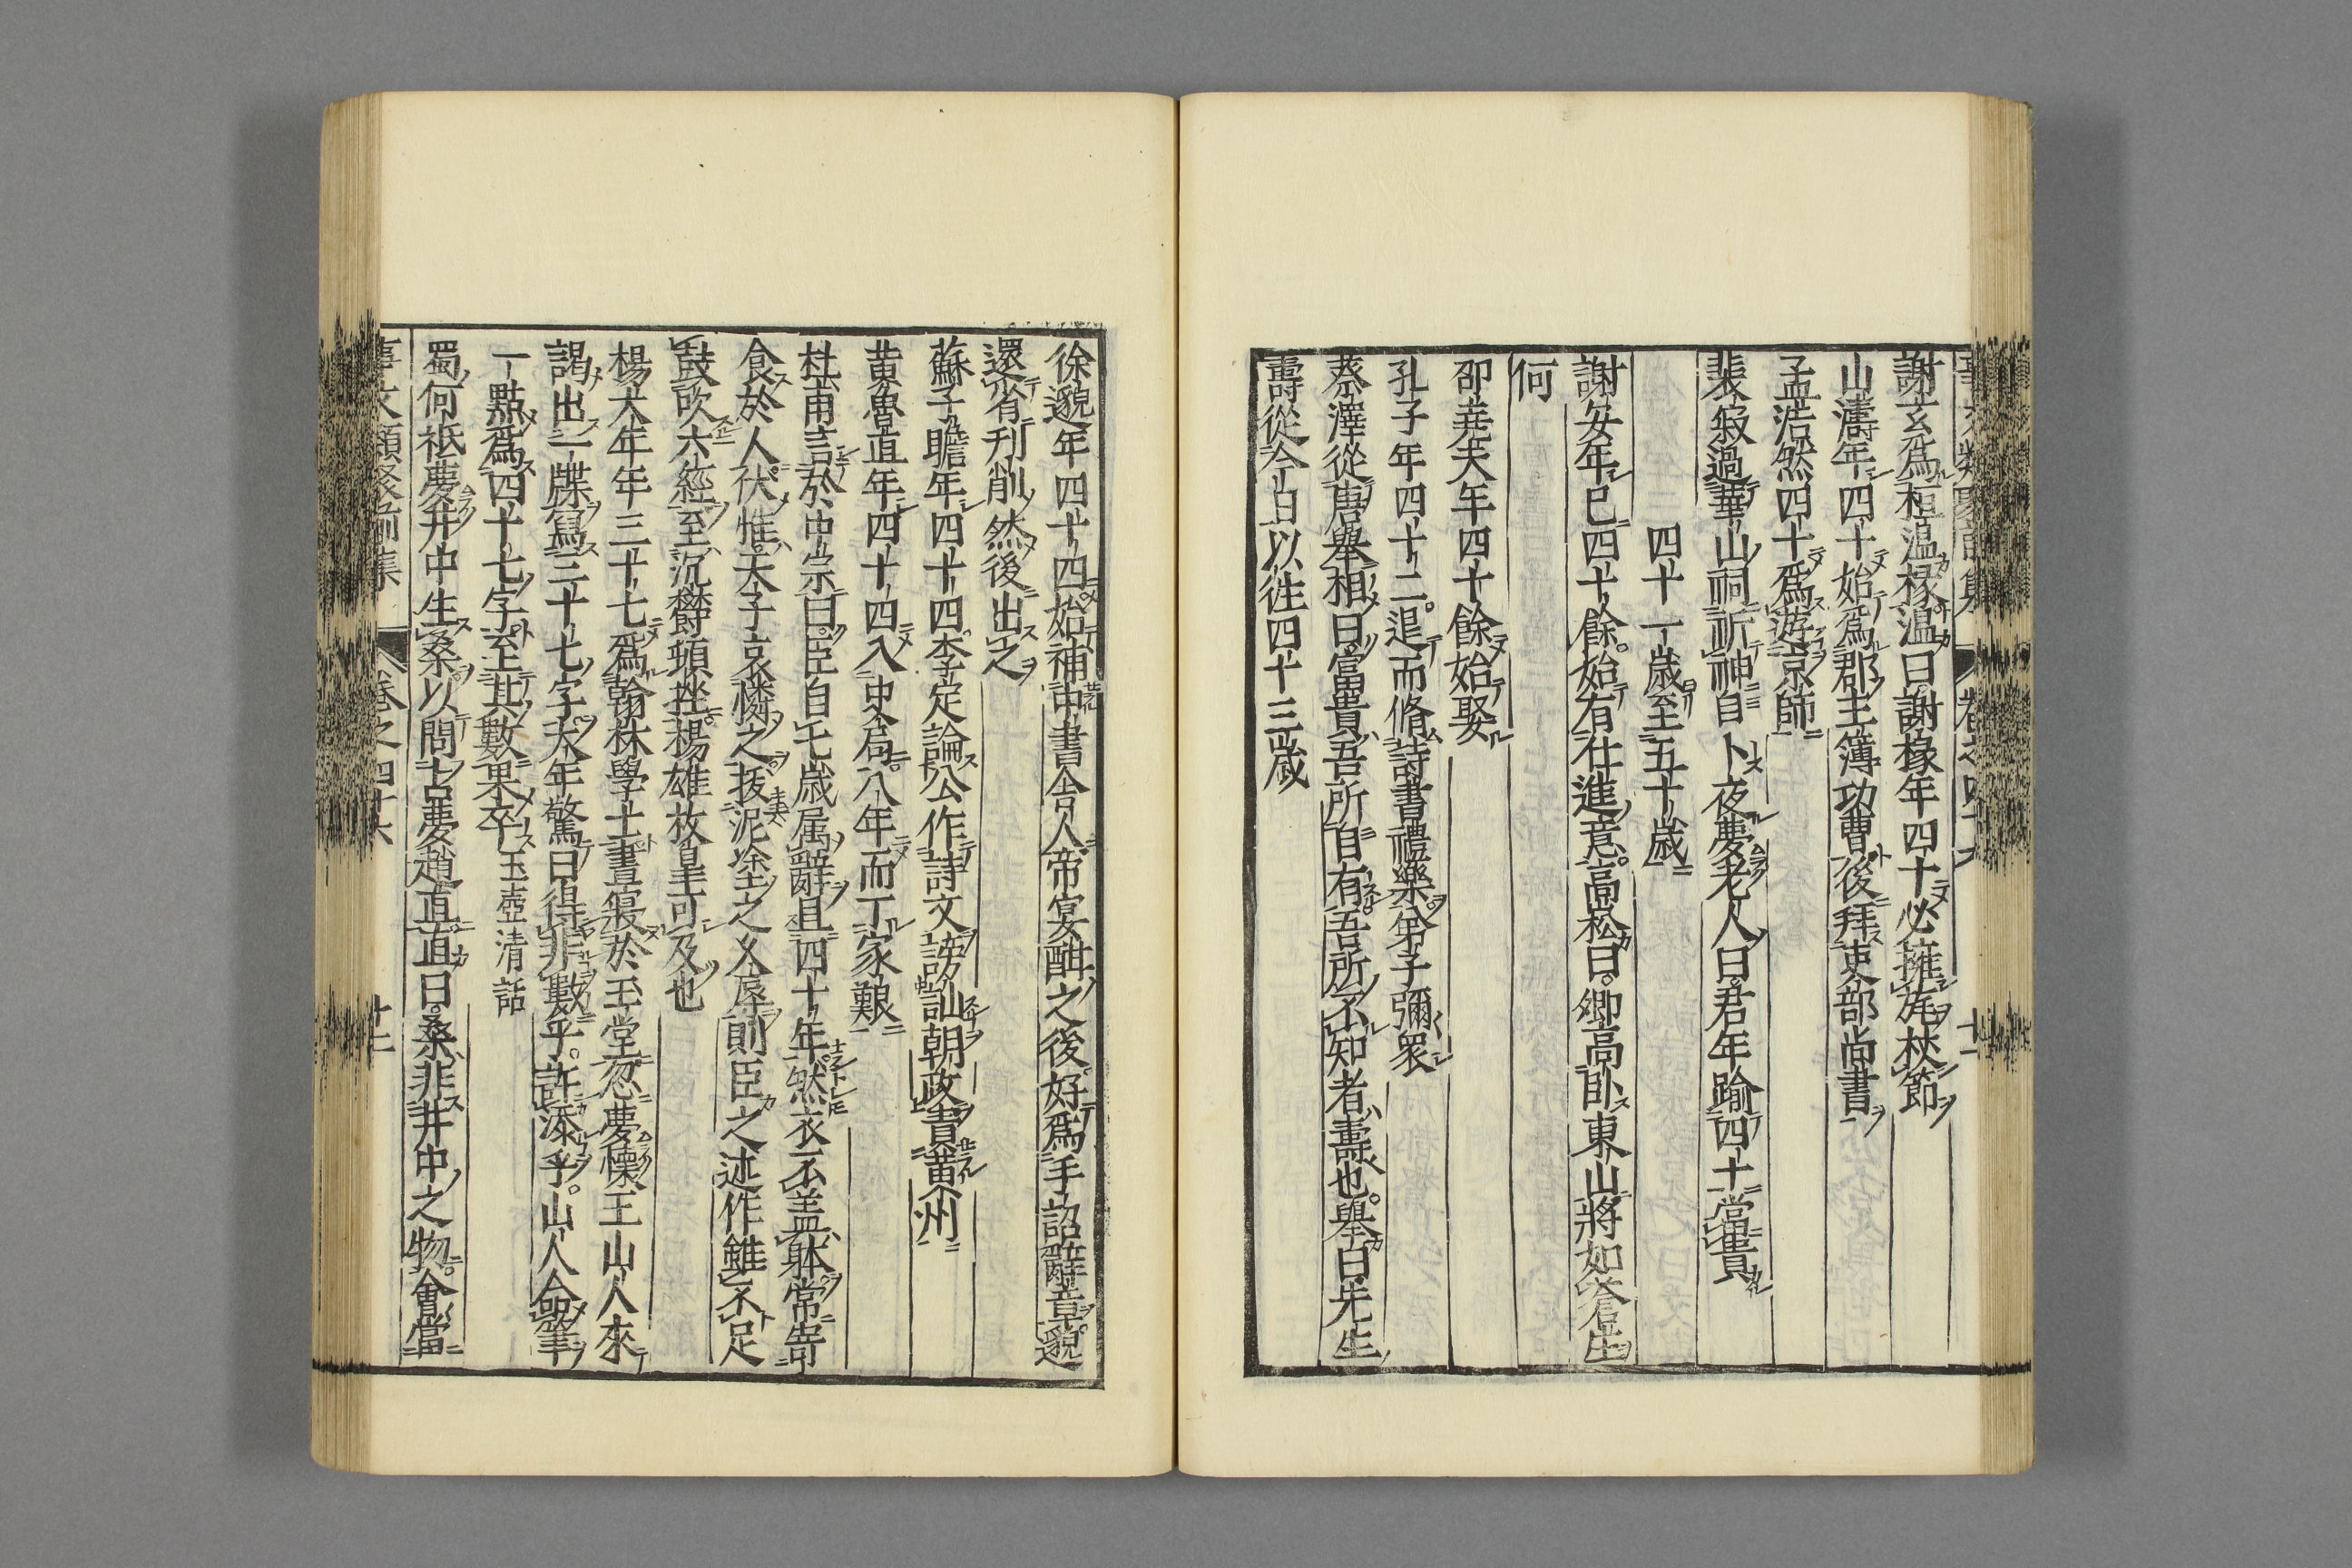 謝玄爲桓温掾温曰謝掾年四十必擁旄杖節
山濤年四十始爲郡主簿功曹後拜吏部尚書
孟浩然四十爲游京師
裴寂過華山祠祈神自卜夜夢老人曰君年踰四十當貴
四十一歳至五十歳
謝安年已四十餘始有仕進意高崧曰卿高卧東山將如蒼生
何
邵尭夫年四十餘始娶
孔子年四十二退而脩詩書禮樂弟子彌衆
蔡澤從唐舉相曰富貴吾所自有吾所不知者壽也舉曰先生
壽從今日以徃四十三歳
徐邈年四十四始補中書舎人帝宴酣之後好爲手詔辭章邈
還省刊削然後出之
蘇子瞻年四十四李定論公作詩文謗訕朝政責黄州
黄魯直年四十四入史局八年而丁家艱
杜甫言於中宗曰臣自七歳属辭且四十年然衣不盖躰常寄
食於人伏惟天子哀憐之拔泥塗之久辱則臣之述作雖不足
鼓吹六經至沉欝頓挫楊雄枚皐可及也
楊大年年三十七爲翰林學士晝寢於玉堂忽夢懐玉山人來
謁出一牒寫三十七字大年驚曰得非數乎許添乎山人命筆
一點爲四十七字至其數果卒玉壺清話
蜀何祗夢井中生桑以問占夢趙直直曰桑非井中之物會當
事文類聚前集 巻之四十六 十二